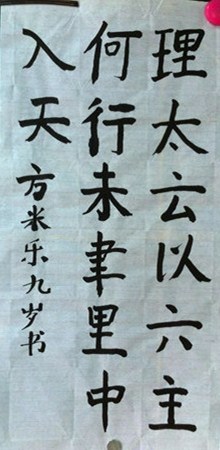 理太云以六主
何行未聿里中
入天
方米乐九岁书